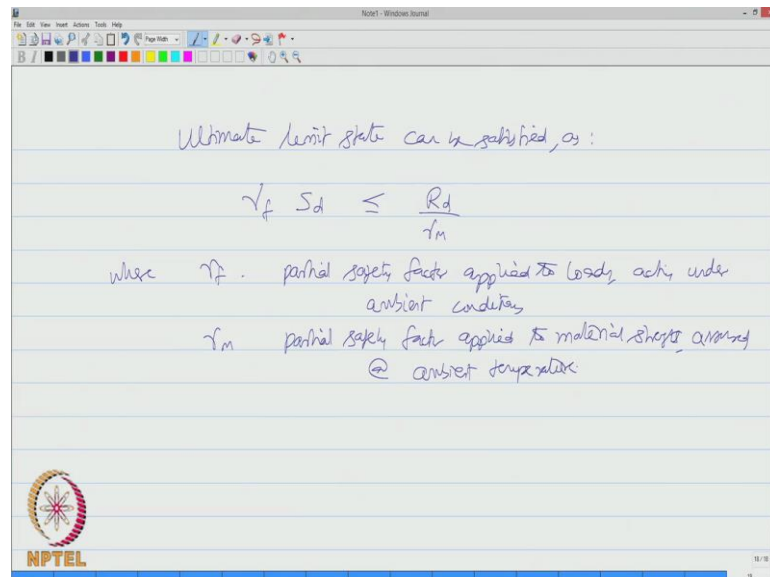 Note1 - Windows Journal
File Edit View Insert Actions Tools Help
Page Width
B I
Ultimate limit state can be satisfied, as:
γf Sd ≤ Rd
γM
where γf - partial safety factor applied to loads, acting under
ambient conditions
γM partial safety factor applied to material strength, assumed
@ ambient temperature.
NPTEL
18 / 18